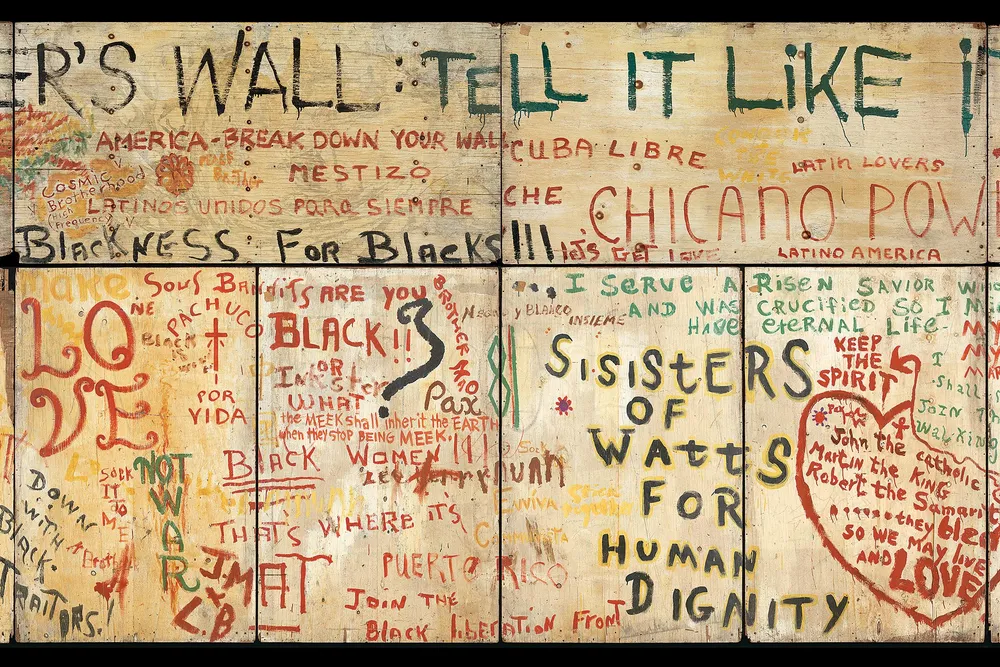 ER'S WALL: TELL IT LIKE I
AMERICA-BREAK DOWN YOUR WALL
MESTIZO
COSMIC
Brotherhood
(High
Frequency)
LATINOS UNIDOS PARA SIEMPRE
BlackNESS FOR BlacKS!!!
CUBA LIBRE
LATIN LOVERS
CHE
CHICANO POW
LET'S GET
LATINO AMERICA
make
LO
VE
Soul BaNDiTS ARE YOU
BLACK!!?
BROTHER
NE
PACHUCO
BLACK
IS
POR
VIDA
NOT
WAR
SOCK
IT
TO
ME
DOWN
WITH
BLACK
TRAITORS!
Brother
JM
L.B
OR
WHAT
Pax
the MEEK shall inherit the EARTH
when they stop BEING MEEK.
BLACK WOMEN
THAT'S WHERE IT'S
AT
PUERTO RICO
JOIN THE
BLACK liberation Front
y BLANCO
INSIEME
Viva
I SERVE A RISEN SAVIOR
AND WAS CRUCIFIED SO I
HAVE eTERNAL Life-
SISISTERS
OF
WAttS
FOR
HUMAN
DIGNITY
KEEP
THE
SPIRIT
I
Shall
JOIN
WalKing
John the catholic
Martin the KING
Robert the Samari
they bled
SO WE MAY live
AND LOVE